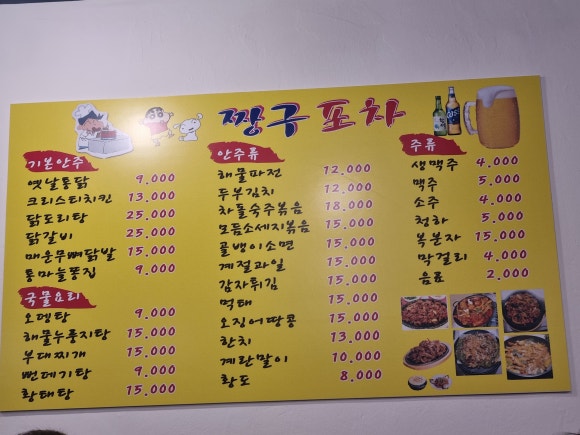 짱구 포차
기본안주
옛날통닭 9.000
크리스티치킨 13.000
닭도리탕 25.000
닭갈비 25.000
매운무뼈닭발 15.000
통마늘똥집 9.000
국물요리
오뎅탕 9.000
해물누룽지탕 15.000
부대찌개 15.000
뻔데기탕 9.000
황태탕 15.000
안주류
해물파전 12.000
두부김치 12.000
차돌숙주볶음 18.000
모듬소세지볶음 15.000
골뱅이소면 15.000
계절과일 15.000
감자튀김 15.000
먹태 15.000
오징어땅콩 15.000
한치 13.000
계란말이 10.000
황도 8.000
주류
생맥주 4.000
맥주 5.000
소주 4.000
청하 5.000
복분자 15.000
막걸리 4.000
음료 2.000